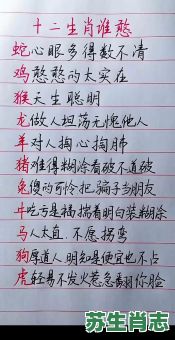 十二生肖谁憨
蛇心眼多得数不清
鸡憨憨的太实在
猴天生聪明
龙做人坦荡无愧他人
羊对人掏心掏肺
猪难得糊涂看破不道破
兔傻的可怜把骗子当朋友
牛吃亏是福揣着明白装糊涂
马人太直.不愿拐弯
狗厚道人明知是便宜也不占
虎轻易不发火惹急翻你脸
苏生肖志